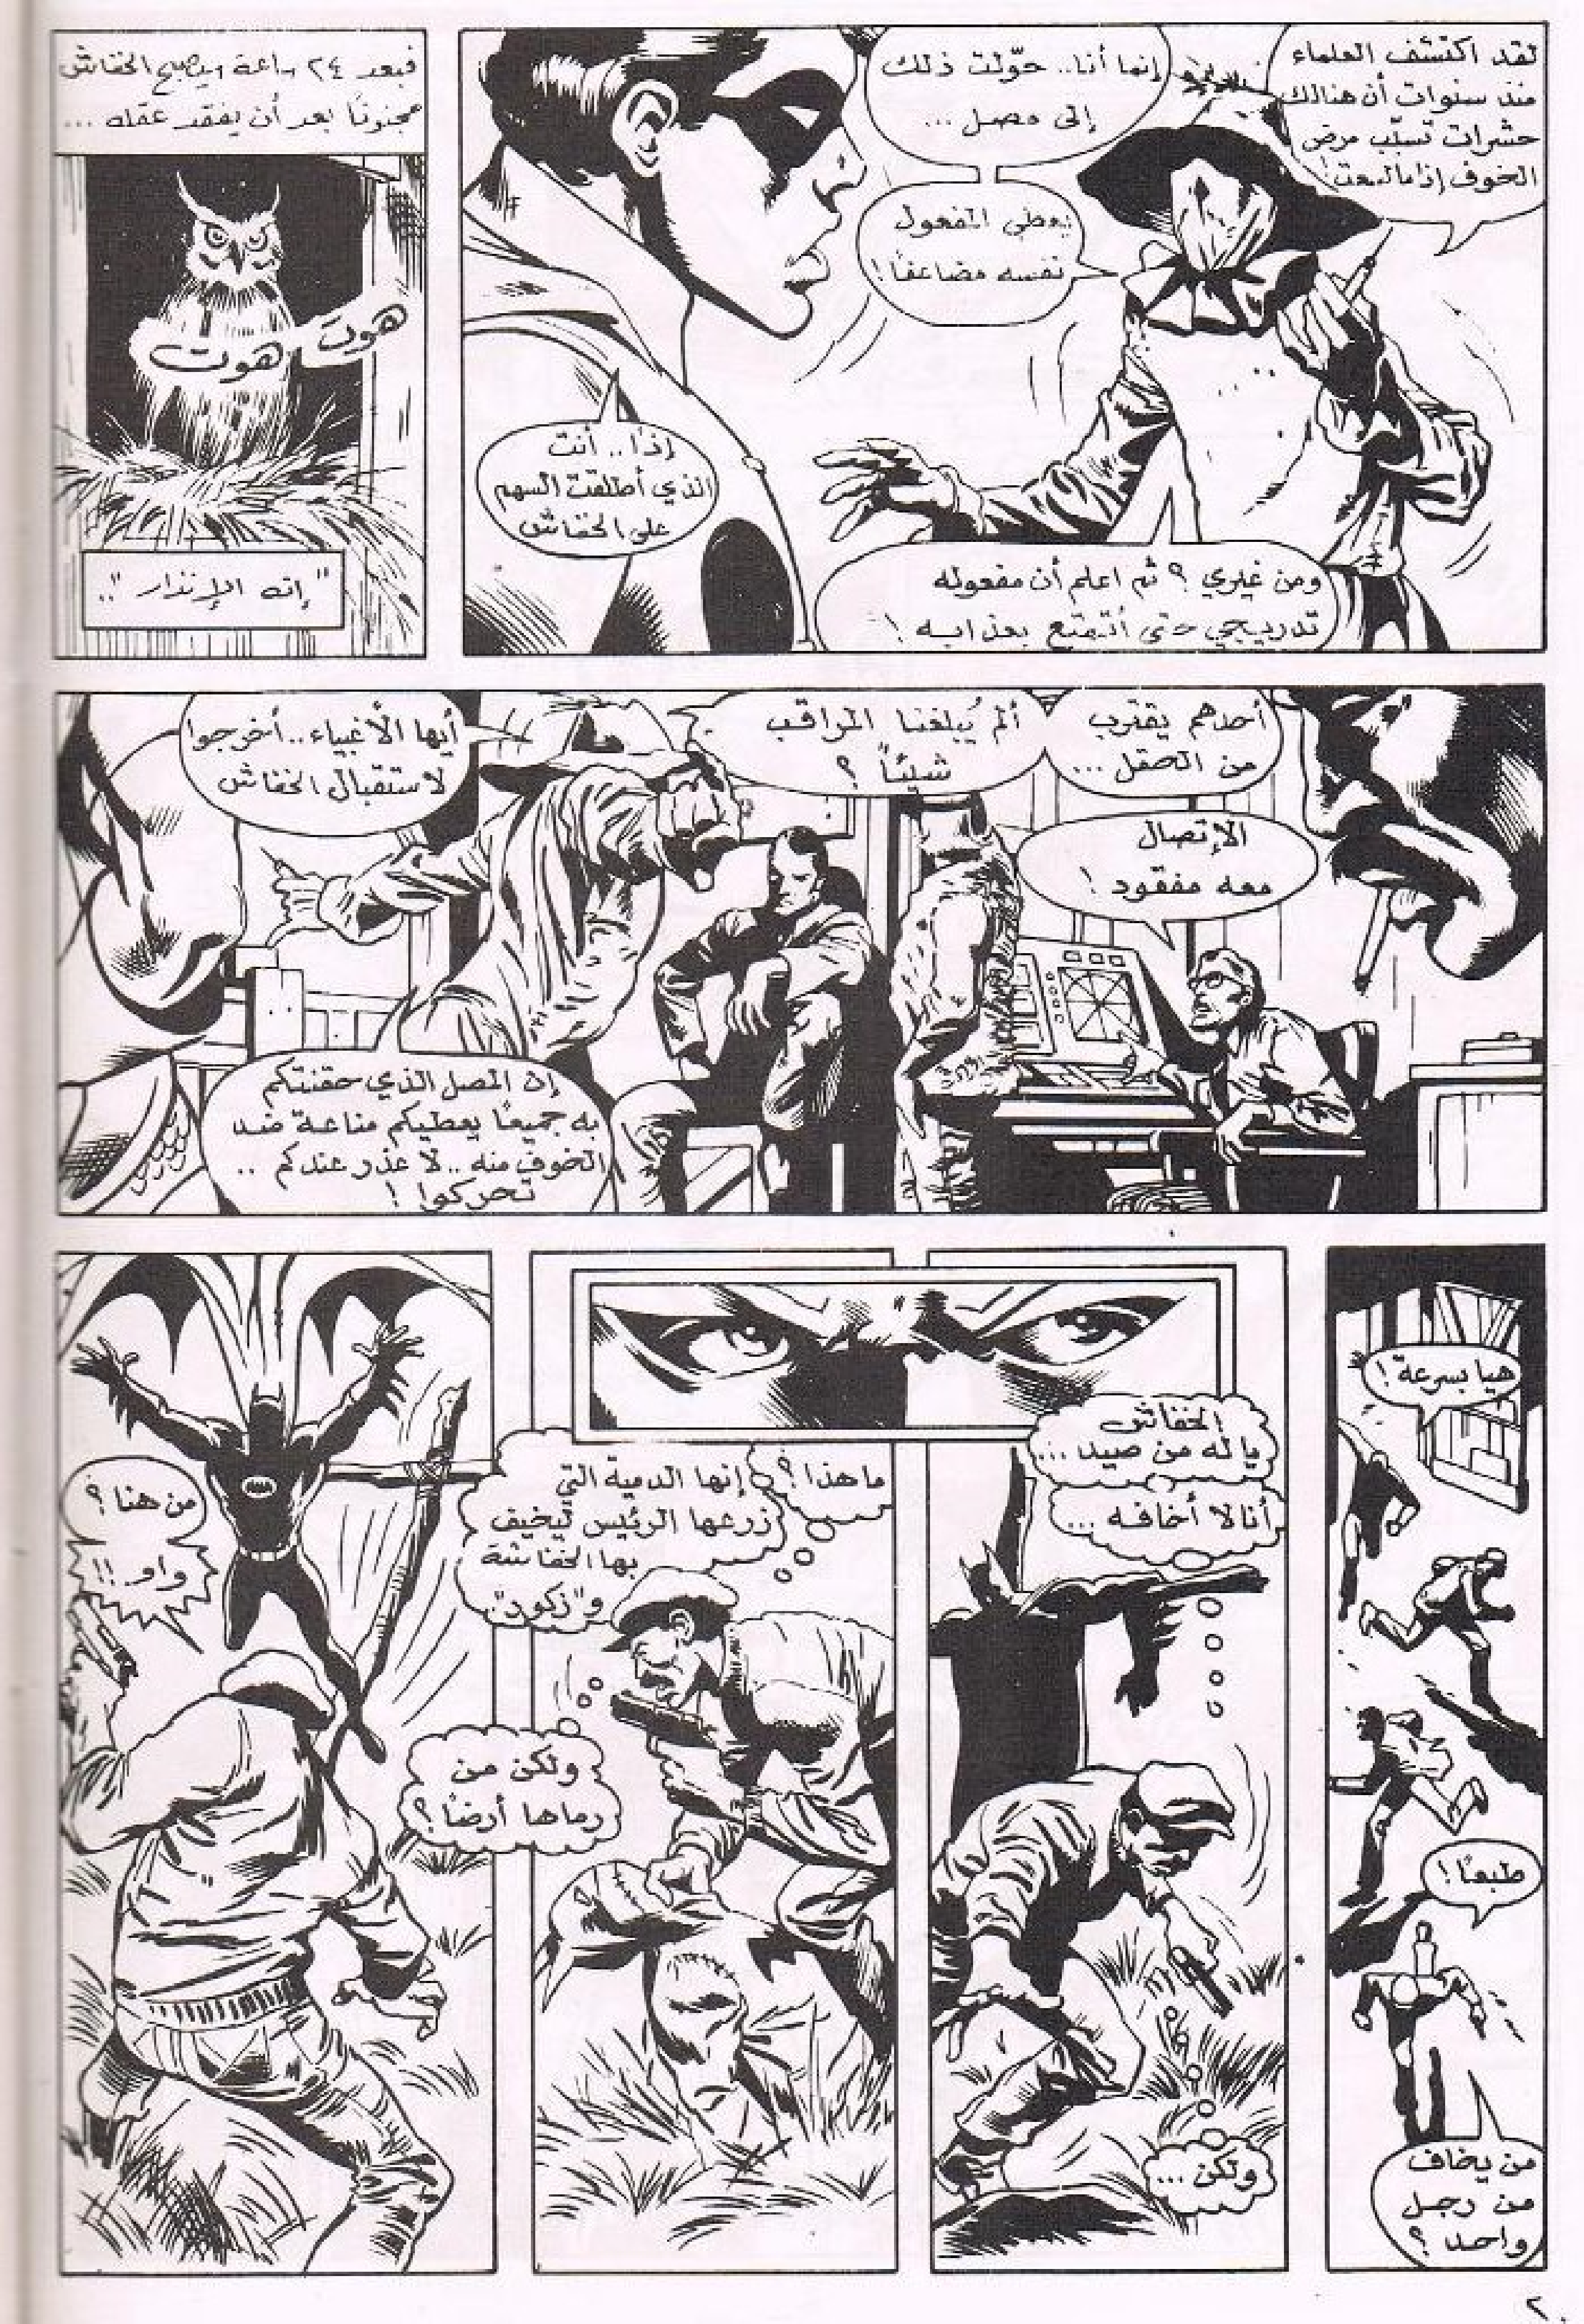 لقد اكتشف العلماء
منذ سنوات أن هنالك
حشرات تسبّب مرض
الخوف إذا ما لسعت!
إنما أنا.. حوّلت ذلك
إلى مصل ...
يعطي المفعول
نفسه مضاعفاً!
إذاً.. أنت
الذي أطلقت السهم
على الخفاش
ومن غيري؟ ثم اعلم أن مفعوله
تدريجي حتى أتمتع بعذابه!
فبعد ٢٤ ساعة سيصبح الخفاش
مجنوناً بعد أن يفقد عقله ...
هوت
هوت
"إنه الإنذار"..
أحدهم يقترب
من الحقل ...
الإتصال
معه مفقود!
ألم يُبلغنا المراقب
شيئاً؟
أيها الأغبياء.. أخرجوا
لاستقبال الخفاش
إن المصل الذي حقنتكم
به جميعاً يعطيكم مناعة ضد
الخوف منه.. لا عذر عندكم ..
تحركوا!
هيا بسرعة!
طبعاً!
من يخاف
من رجل
واحد؟
الخفاش
يا له من صيد ...
أنا لا أخافه ...
ولكن ...
ما هذا؟
إنها الدمية التي
زرعها الرئيس ليخيف
بها الخفاشة
و"زكور".
ولكن من
رماها أرضاً؟
من هنا؟
واو!!
٢٠